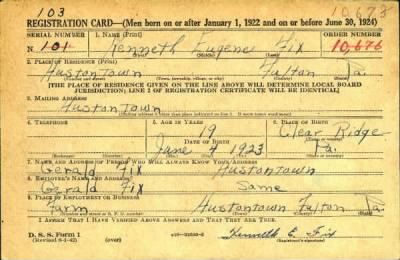 103 10,678
REGISTRATION CARD—(Men born on or after January 1, 1922 and on or before June 30, 1924)
SERIAL NUMBER 1. NAME (Print) ORDER NUMBER
N 101 Kenneth Eugene Fix 10,676
(First) (Middle) (Last)
2. PLACE OF RESIDENCE (Print)
Hustontown Fulton Pa.
(Number and street) (Town, township, village, or city) (County) (State)
[THE PLACE OF RESIDENCE GIVEN ON THE LINE ABOVE WILL DETERMINE LOCAL BOARD
JURISDICTION; LINE 2 OF REGISTRATION CERTIFICATE WILL BE IDENTICAL]
3. MAILING ADDRESS
Hustontown
[Mailing address if other than place indicated on line 2. If same insert word same]
4. TELEPHONE 5. AGE IN YEARS 6. PLACE OF BIRTH
19 Clear Ridge
DATE OF BIRTH
June 4 1923 Pa.
(Exchange) (Number) (Mo.) (Day) (Yr.) (State or country)
7. NAME AND ADDRESS OF PERSON WHO WILL ALWAYS KNOW YOUR ADDRESS
Gerald Fix Hustontown
8. EMPLOYER'S NAME AND ADDRESS
Gerald Fix Same
9. PLACE OF EMPLOYMENT OR BUSINESS
Farm Hustontown Fulton Pa.
(Number and street or R. F. D. number) (Town) (County) (State)
I AFFIRM THAT I HAVE VERIFIED ABOVE ANSWERS AND THAT THEY ARE TRUE.
D. S. S. Form 1
(Revised 6-1-42) (over) Kenneth E. Fix
(Registrant's signature)